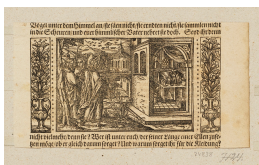 Vögel vnter dem Himmel an/sie säen nicht/sie erndten nicht/sie samlen nicht
in die Schewren/vnd ewer himmlischer Vater nehret sie doch. Seyd ihr denn
nicht viel mehr denn sie? Wer ist vnter euch der seiner Länge eine Ellen zuse-
tzen möge/ob er gleich darumb sorget? Vnd warumb sorget ihr für die Kleidung?